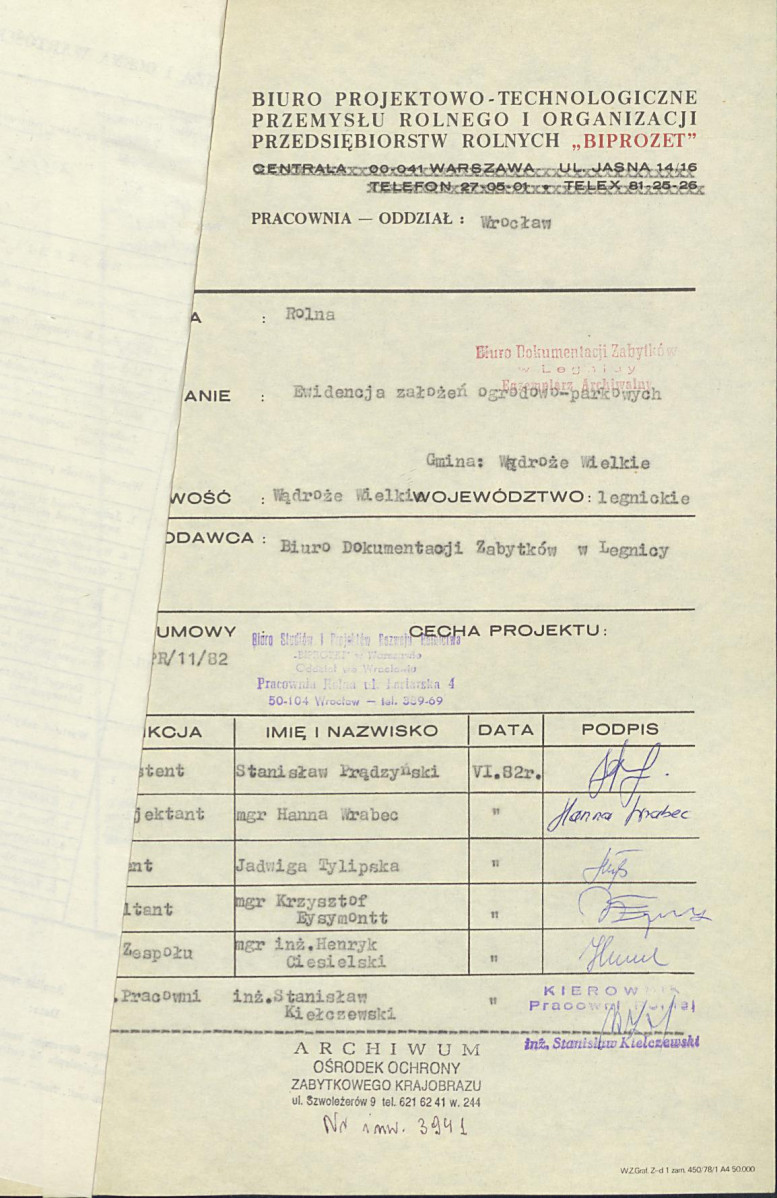 BIURO PROJEKTOWO-TECHNOLOGICZNE
PRZEMYSŁU ROLNEGO I ORGANIZACJI
PRZEDSIĘBIORSTW ROLNYCH „BIPROZET”
CENTRALA 00-041 WARSZAWA UL. JASNA 14/16
TELEFON 27-05-01 • TELEX 81-25-26
PRACOWNIA — ODDZIAŁ : Wrocław
A : Rolna
Biuro Dokumentacji Zabytków
w Legnicy
Egzemplarz Archiwalny
ANIE : Ewidencja założeń ogrodowo-parkowych
Gmina: Wądroże Wielkie
WOŚĆ : Wądroże Wielkie WOJEWÓDZTWO: legnickie
ODAWCA : Biuro Dokumentacji Zabytków w Legnicy
UMOWY CECHA PROJEKTU:
PR/11/82
Biuro Studiów i Projektów Rozwoju Rolnictwa
„BIPROZET” w Warszawie
Oddział we Wrocławiu
Pracownia Rolna ul. Łaciarska 4
50-104 Wrocław — tel. 389-69
KCJA IMIĘ I NAZWISKO DATA PODPIS
stent Stanisław Prądzyński VI.82r.
jektant mgr Hanna Wrabec " Hanna Wrabec
nt Jadwiga Tylipska "
ltant mgr Krzysztof
Eysymontt "
Zespołu mgr inż.Henryk
Ciesielski "
.Pracowni inż.Stanisław "
Kiełczewski
KIEROWNIK
Pracowni Rolnej
inż. Stanisław Kiełczewski
ARCHIWUM
OŚRODEK OCHRONY
ZABYTKOWEGO KRAJOBRAZU
ul. Szwoleżerów 9 tel. 621 62 41 w. 244
Nr inw. 3941
WZGraf. Z-d 1 zam. 450/78/1 A4 50.000